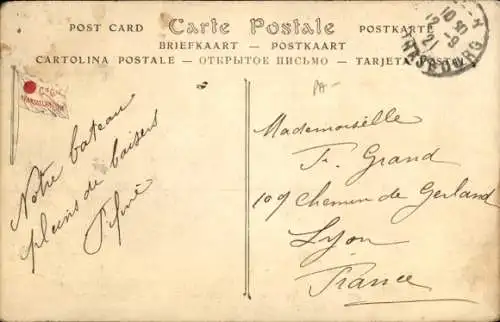 POST CARD Carte Postale POSTKARTE
BRIEFKAART - POSTKAART
CARTOLINA POSTALE - ОТКРЫТОЕ ПИСЬМО - TARJETA POSTAL
10 30
12-9
21
Notre bateau
pleins de baisers
Mademoiselle
F. Grand
109 Chemin de Gerland
Lyon
France